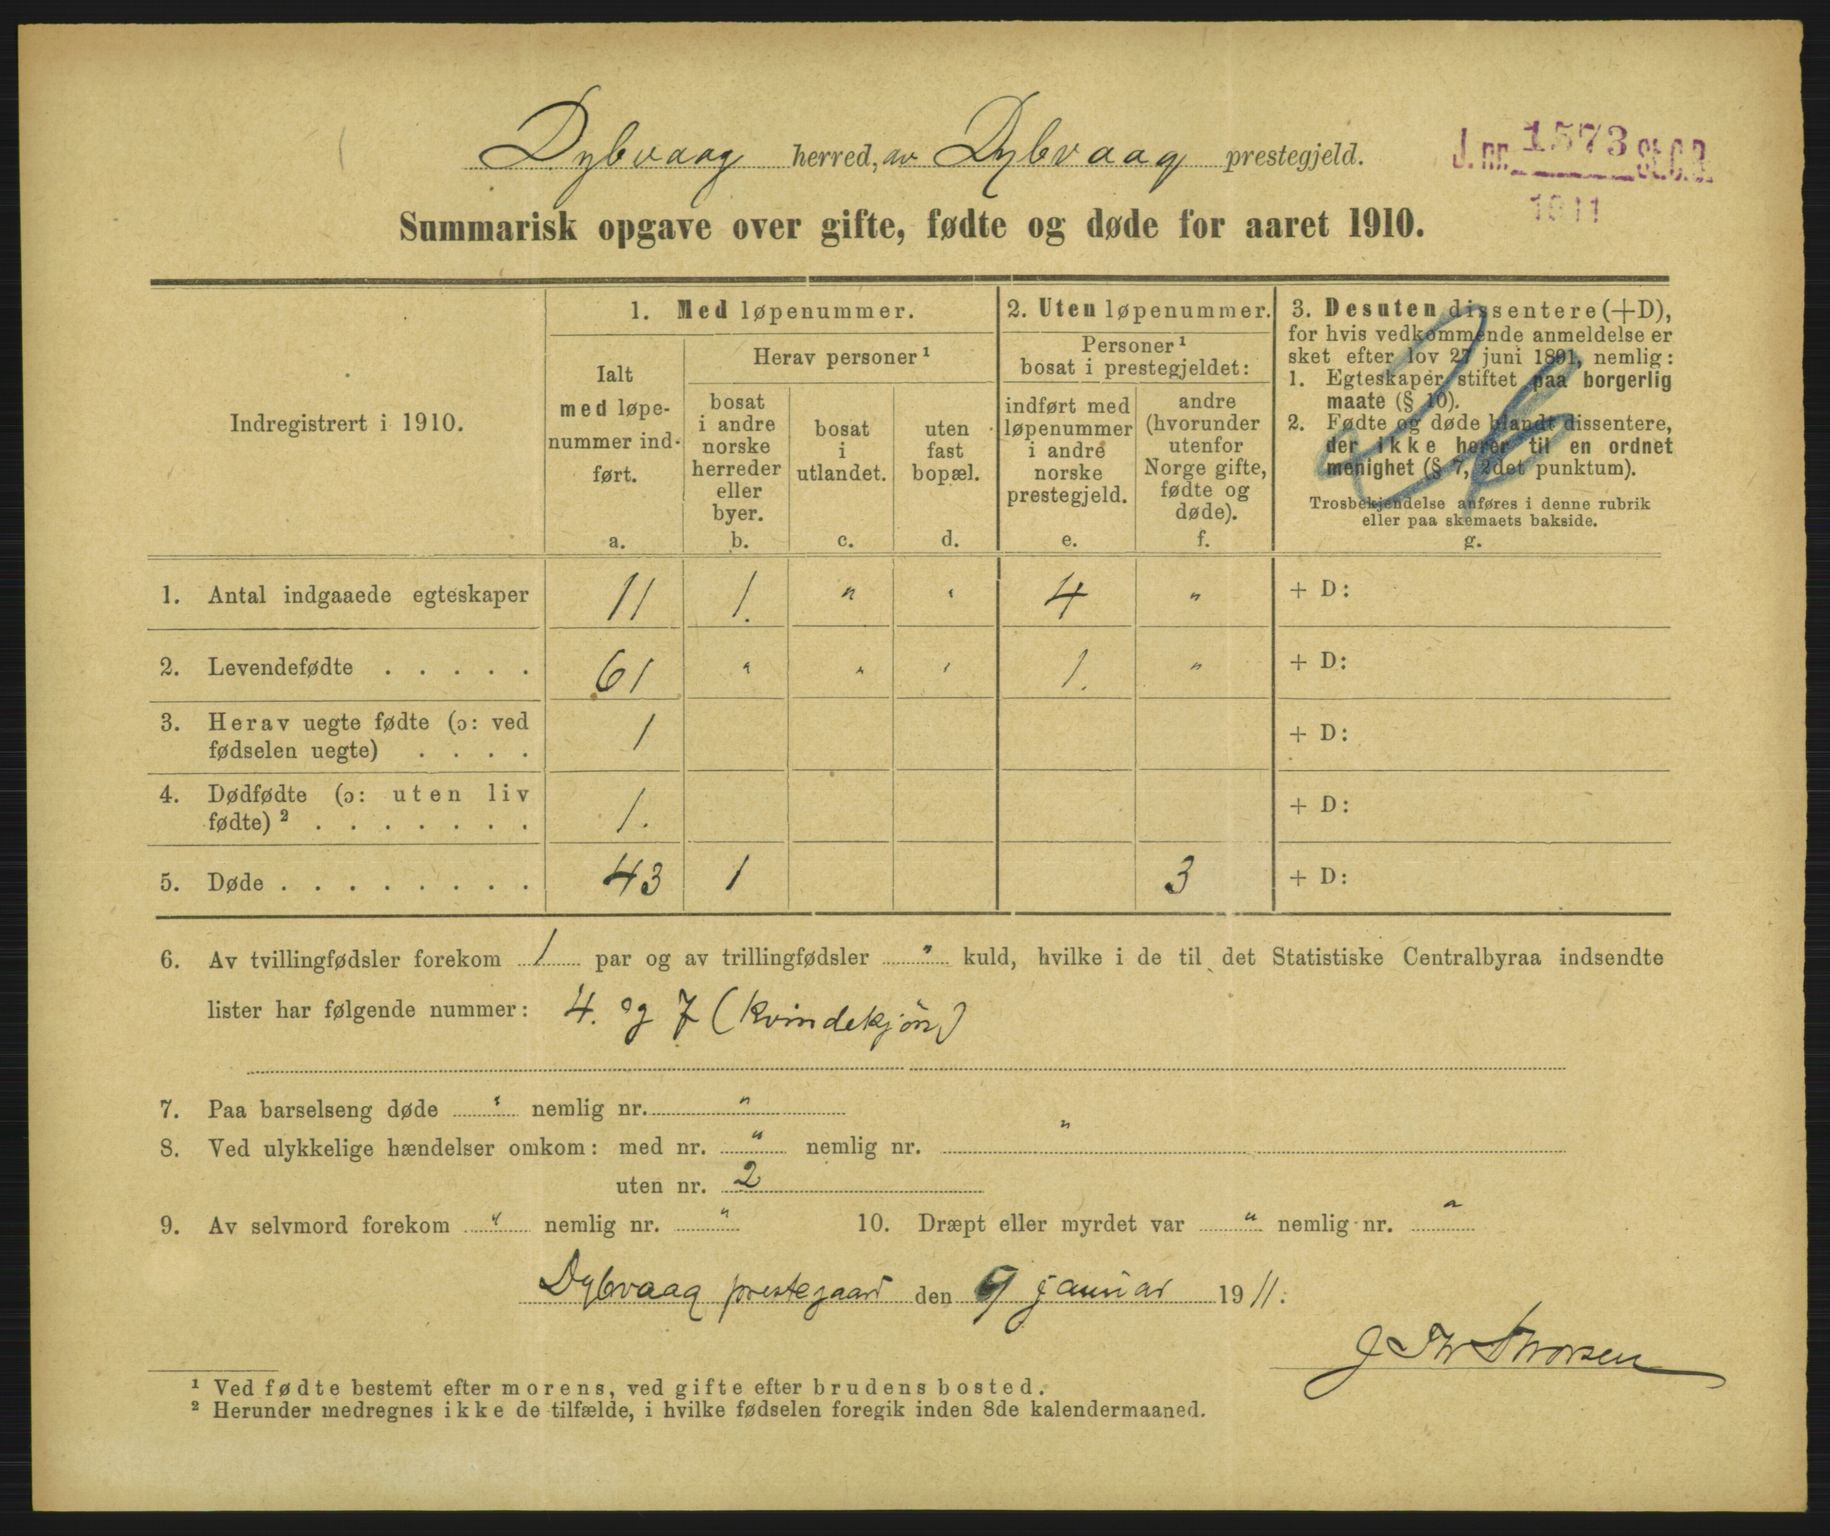 Dybvaag herred, av Dybvaag prestegjeld.
J. nr. 1573 St.C.B.
1911
Summarisk opgave over gifte, fødte og døde for aaret 1910.
Indregistrert i 1910.
1. Med løpenummer.
Ialt
med løpe-
nummer ind-
ført.
a.
Herav personer ¹
bosat
i andre
norske
herreder
eller
byer.
b.
bosat
i
utlandet.
c.
uten
fast
bopæl.
d.
2. Uten løpenummer.
Personer ¹
bosat i prestegjeldet:
indført med
løpenummer
i andre
norske
prestegjeld.
e.
andre
(hvorunder
utenfor
Norge gifte,
fødte og
døde).
f.
3. Desuten dissentere (+D),
for hvis vedkommende anmeldelse er
sket efter lov 27 juni 1891, nemlig:
1. Egteskaper stiftet paa borgerlig
maate (§ 10).
2. Fødte og døde blandt dissentere,
der ikke hører til en ordnet
menighet (§ 7, 2det punktum).
Trosbekjendelse anføres i denne rubrik
eller paa skemaets bakside.
g.
1. Antal indgaaede egteskaper 11 1. " " 4 " + D:
2. Levendefødte . . . . . 61 " " " 1. " + D:
3. Herav uegte fødte (ɔ: ved
fødselen uegte) . . . . 1 + D:
4. Dødfødte (ɔ: uten liv
fødte) ² . . . . . . . 1. + D:
5. Døde . . . . . . . . 43 1 3 + D:
6. Av tvillingfødsler forekom 1 par og av trillingfødsler " kuld, hvilke i de til det Statistiske Centralbyraa indsendte
lister har følgende nummer: 4. og 7 (kvindekjøn)
7. Paa barselseng døde " nemlig nr. "
8. Ved ulykkelige hændelser omkom: med nr. " nemlig nr. "
uten nr. 2
9. Av selvmord forekom " nemlig nr. " 10. Dræpt eller myrdet var " nemlig nr. "
Dybvaag prestegaard den 9 januar 1911.
J Thorsen
¹ Ved fødte bestemt efter morens, ved gifte efter brudens bosted.
² Herunder medregnes ikke de tilfælde, i hvilke fødselen foregik inden 8de kalendermaaned.